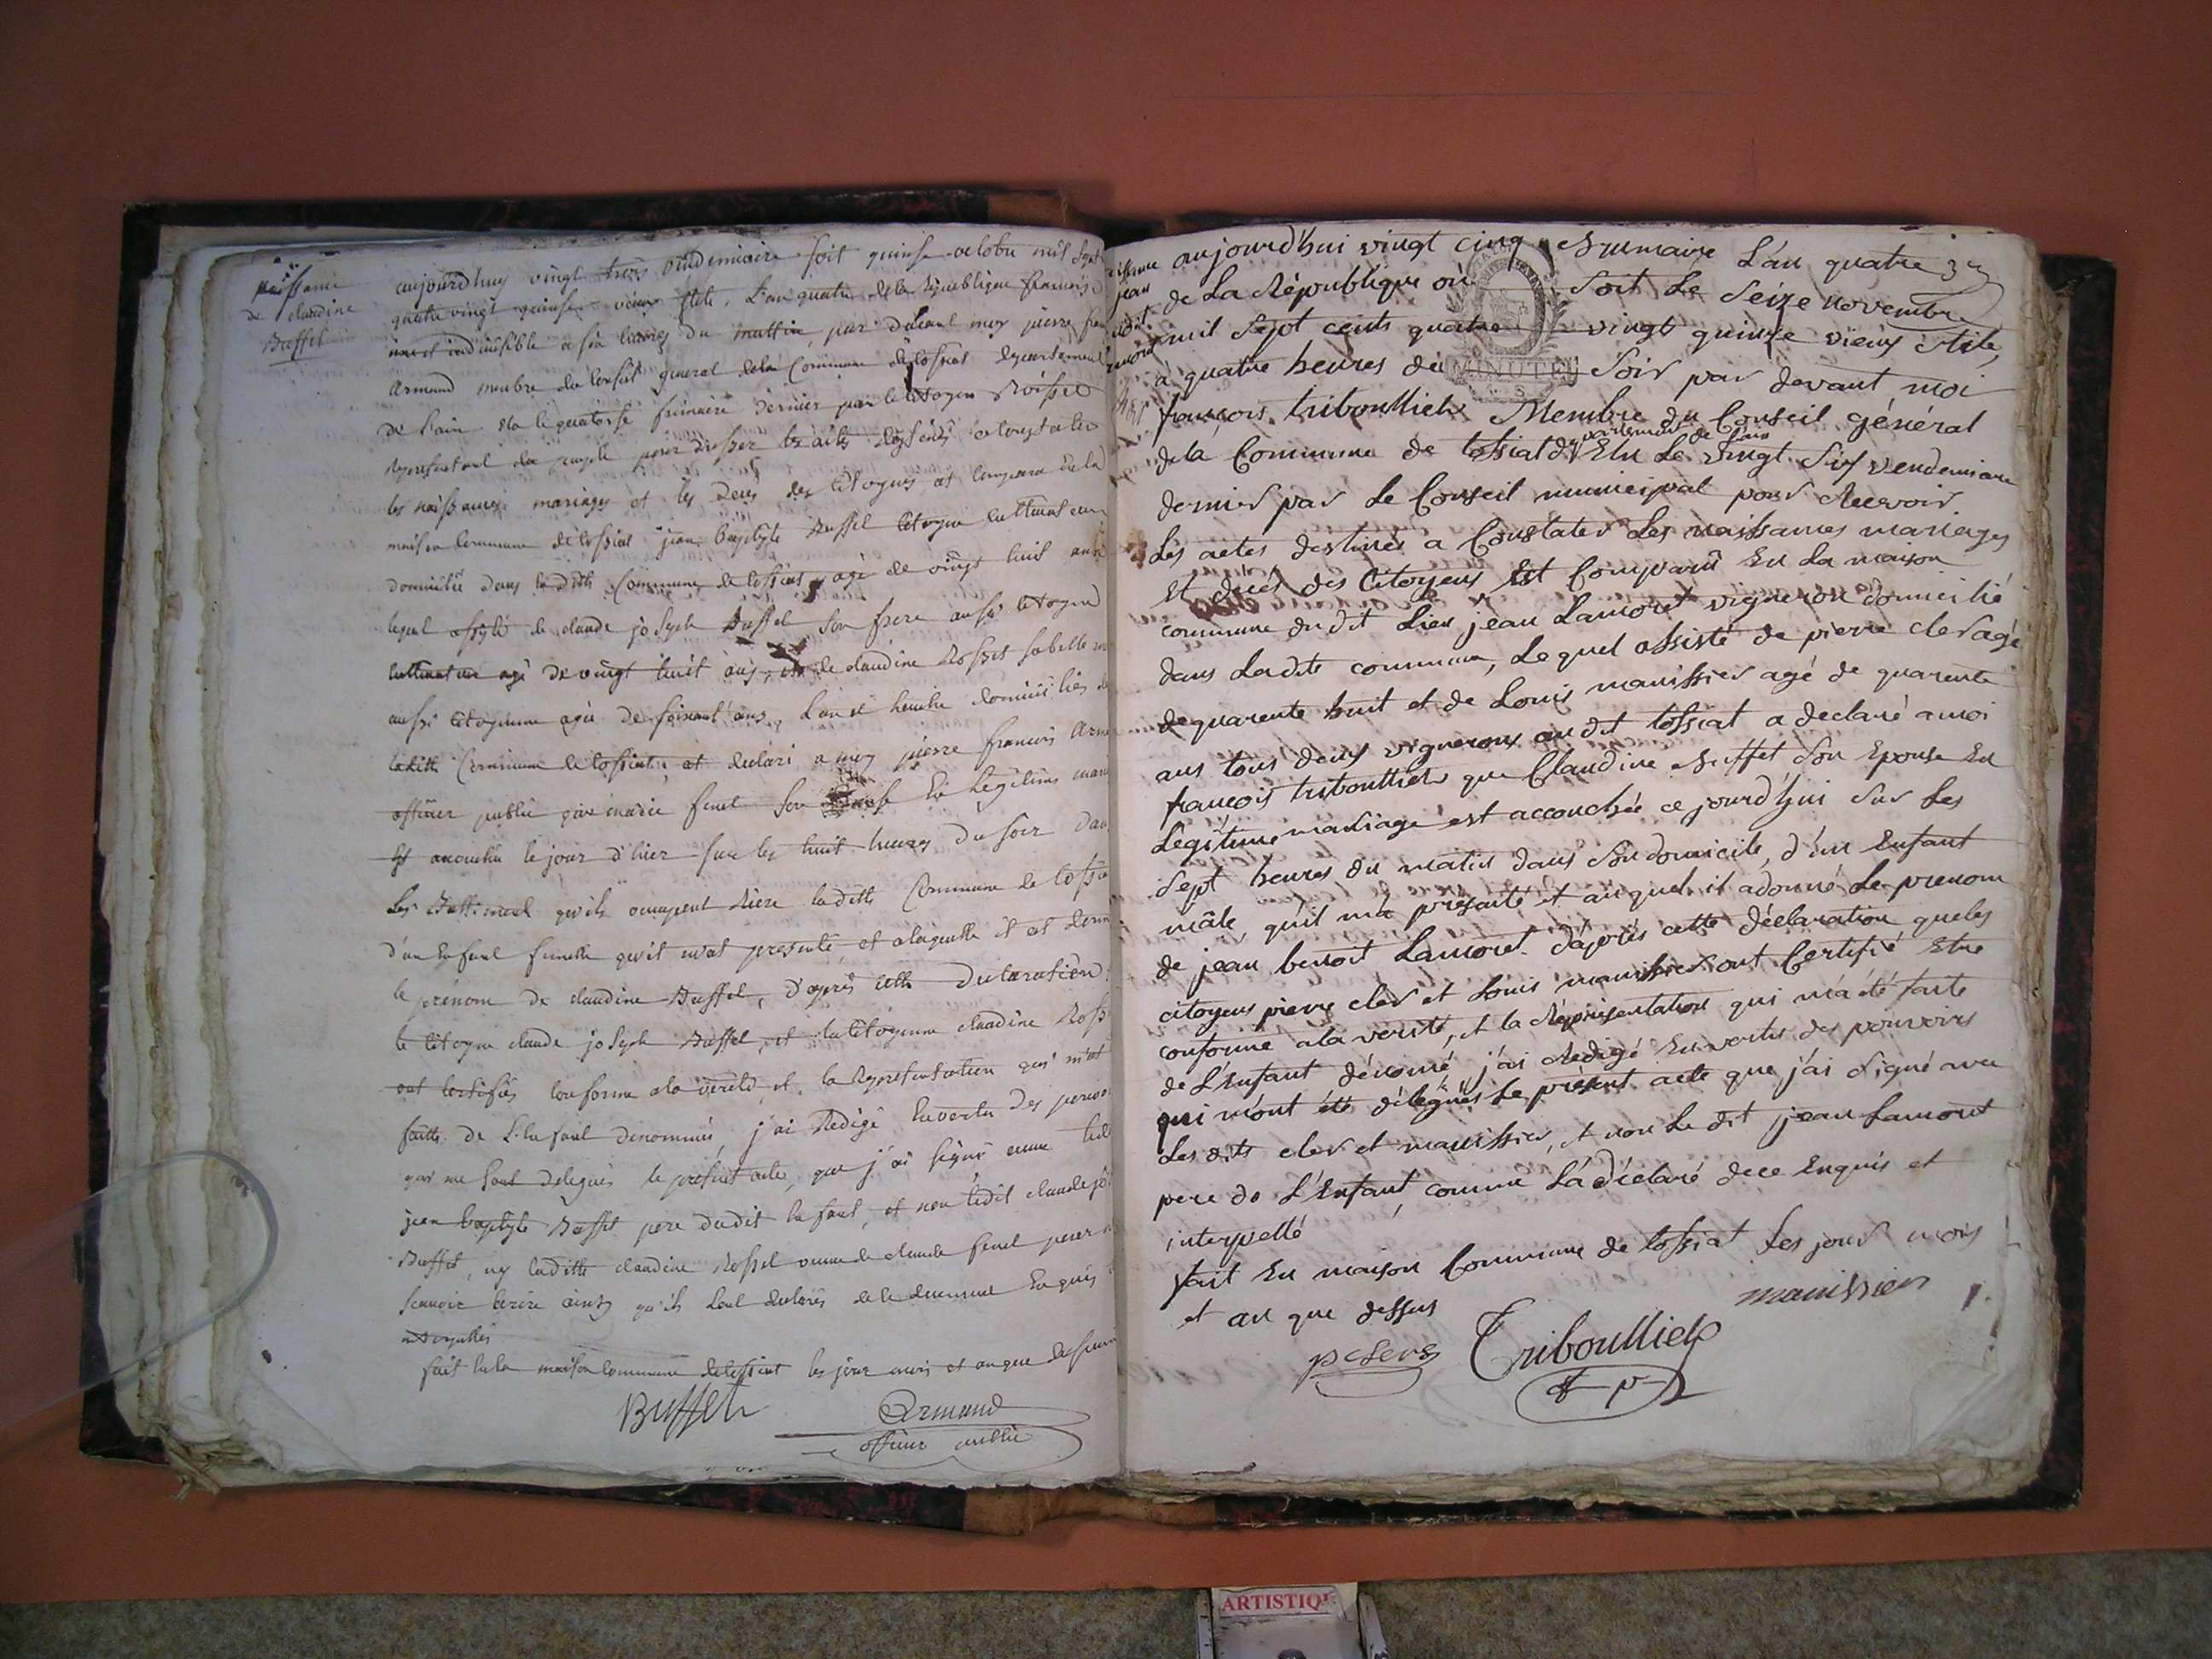 naissance
de claudine
Buffet
aujourdhuy vingt trois vendemiaire soit quinse octobre mil sept
quatre vingt quinse vieux stile, L'an quatre de la Republique francaise
une et indivisible a six heures du mattin, par devant moy pierre fran
Armand membre du Conseil general de la Commune de tossiat departement
de l'ain elu le quatorse frimaire dernier par le citoyen
representant du peuple pour dresser les actes destinés a constater
les naissances mariages et les deces des citoyens est comparu en la
maison commune de tossiat jean baptiste Buffet citoyen cultivateur
domicilié dans la ditte Commune de tossiat agé de vingt huit ans
lequel assisté de claude joseph Buffet son frere aussi citoyen
cultivateur agé de vingt huit ans, et de claudine Rosset sa belle m
aussi citoyenne agée de soixant ans, L'un et lautre domiciliés de
laditte Commune de tossiat, at declaré a moy pierre francois Arm
officier public que marie fenet son Epouse En legitime mari
Est accouchée le jour d'hier sur les huit heures du soir dans
Les Battiment qu'ils occupent Riere laditte Commune de tossia
d'un Enfant femelle qu'il m'at presenté, et alaquelle il at donn
le prénom de claudine Buffet, d'aprés cette Declaration
le citoyen claude joseph Buffet, et la citoyenne claudine Ross
ont certifiés conforme ala verité, et la Representation qui m'at
faitte de L'enfant denommé, j'ai Redigé En vertu des pouvoi
qui me sont delegués le present acte, que j'ai signé avec led
jean baptiste Buffet pere dudit Enfant, et non ledit claude jo
Buffet, ny laditte claudine Rosset veuve de claude fenet pour n
scavoir écrire ainsy qu'ils L'ont declarés de le deument Enquis
interpellés
fait En la maison Commune de tossiat les jour mois et an que dessus
Buffet
Armand
officier public
jean
aujourd'hui vingt cinq Brumaire L'an quatre
de La République ou soit Le Seize novembre
mil sept cents quatre vingt quinze vieux stile,
MINUTE
à quatre heures du soir par devant moi
françois triboulliet Membre du Conseil général
departement de l'ain
dela Commune de tossiat Elu Le vingt six vendemiaire
dernier par Le Conseil municipal pour Recevoir
Les actes destinés a Constater Les naissances mariages
et decés des Citoyens Est Comparû En La maison
commune du dit Lieu jean Lamoret vigneron domicilié
dans Ladite commune, Le quel assisté de pierre cler agé
de quarente huit et de Louis manissier agé de quarente
ans tous deux vignerons au dit tossiat a declaré a moi
françois triboulliet que Claudine Buffet son Epouse En
Legitime mariage est accouchée ce jourd'hui sur Les
sept heures du matin dans son domicile, d'un Enfant
mâle, qu'il m'a présenté et auquel il a donné Le prenom
de jean benoit Lamoret. d'aprés cette déclaration que les
citoyens pierre cler et Louis manissier ont Certifié Etre
conforme a la verité, et la Représentation qui m'a été faite
de L'Enfant dénomé, j'ai Redigé En vertu des pouvoirs
qui m'ont été délégués Le présent acte que j'ai signé avec
Les dits cler et manissier, et non Le dit jean Lamoret
pere de L'Enfant, comme L'a déclaré de ce Enquis et
interpellé
fait En maison Commune de tossiat Les jour mois
et an que dessus
manissier
p clerc
Triboulliet
ARTISTIQ